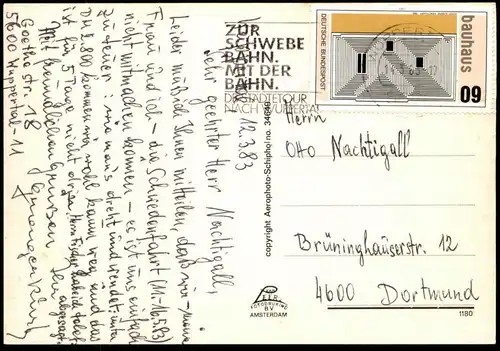 ZUR
SCHWEBE
BAHN.
MIT DER
BAHN.
DIE STÄDTETOUR
NACH WUPPERTAL
bauhaus
DEUTSCHE BUNDESPOST
60
12.3.83
Sehr geehrter Herr Nachtigall,
Leider muß ich Ihnen mitteilen, daß wir – meine
Frau und ich – die Schiedenfahrt (11.-16.5.83)
nicht mitmachen können – es ist uns einfach
zu teuer: wie man's dreht und wendet, unter
DM 2.800 kommen wir wohl kaum weg und das
ist für 5 Tage nicht drin. Herrn Fischer habe ich telef.
abgesagt.
Mit freundlichen Grüßen
Goethestr. 18
5600 Wuppertal-11
Herrn
Otto Nachtigall
Brüninghauserstr. 12
4600 Dortmund
copyright Aerophoto-Schiphol no.
AMSTERDAM
1180